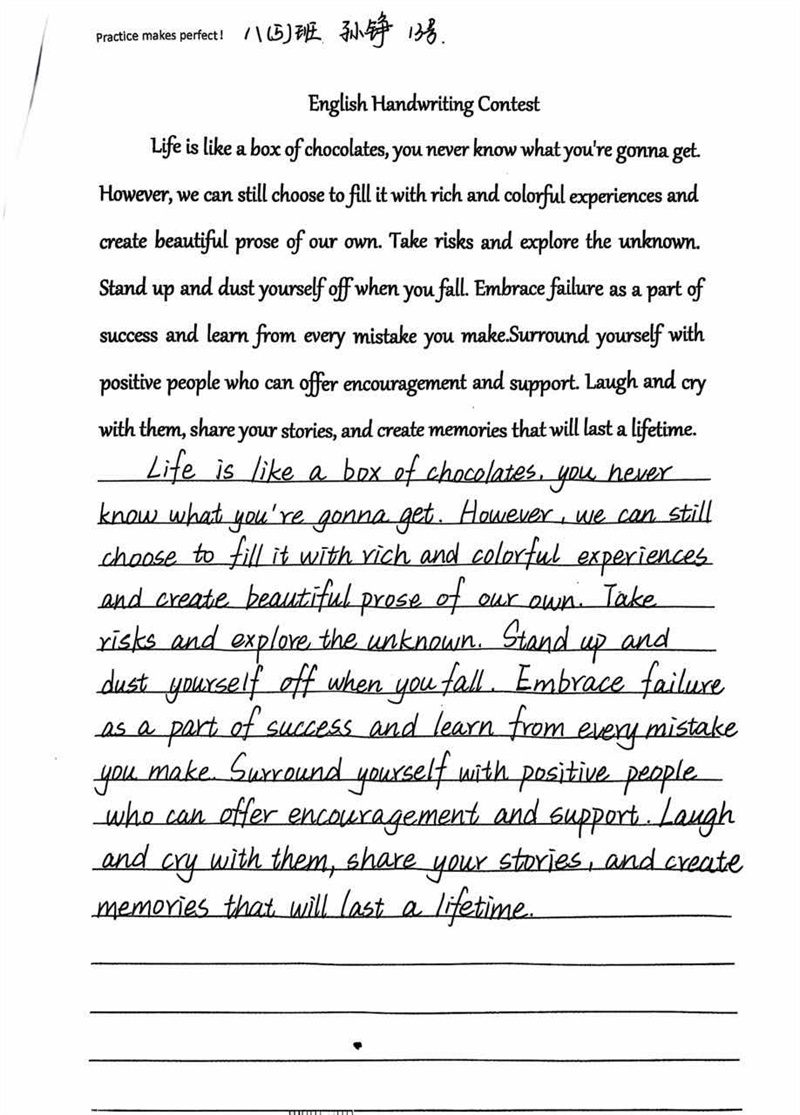 Practice makes perfect! 八(5)班 孙铮 13号.
English Handwriting Contest
Life is like a box of chocolates, you never know what you're gonna get.
However, we can still choose to fill it with rich and colorful experiences and
create beautiful prose of our own. Take risks and explore the unknown.
Stand up and dust yourself off when you fall. Embrace failure as a part of
success and learn from every mistake you make.Surround yourself with
positive people who can offer encouragement and support. Laugh and cry
with them, share your stories, and create memories that will last a lifetime.
Life is like a box of chocolates, you never
know what you're gonna get. However, we can still
choose to fill it with rich and colorful experiences
and create beautiful prose of our own. Take
risks and explore the unknown. Stand up and
dust yourself off when you fall. Embrace failure
as a part of success and learn from every mistake
you make. Surround yourself with positive people
who can offer encouragement and support. Laugh
and cry with them, share your stories, and create
memories that will last a lifetime.